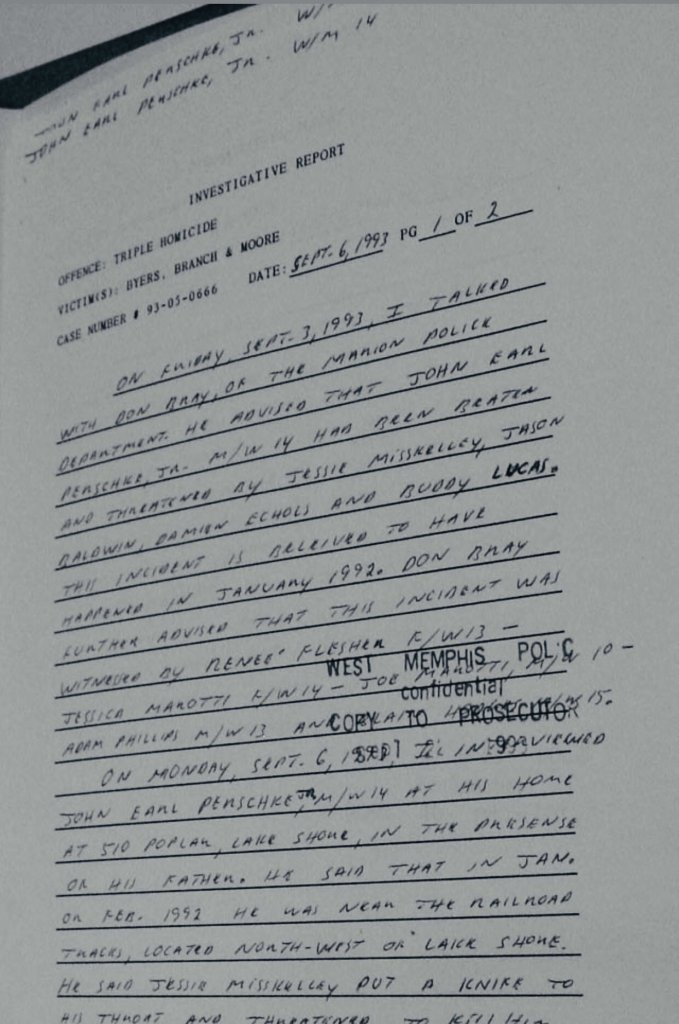 JOHN EARL PERSCHKE, JR. W/
JOHN EARL PERSCHKE, JR. W/M 14
INVESTIGATIVE REPORT
OFFENCE: TRIPLE HOMICIDE
VICTIM(S): BYERS, BRANCH & MOORE
CASE NUMBER # 93-05-0666 DATE: SEPT. 6, 1993 PG 1 OF 2
ON FRIDAY, SEPT. 3, 1993, I TALKED
WITH DON BRAY, OF THE MARION POLICE
DEPARTMENT. HE ADVISED THAT JOHN EARL
PERSCHKE, JR. M/W 14 HAD BEEN BEATEN
AND THREATENED BY JESSIE MISSKELLEY, JASON
BALDWIN, DAMIEN ECHOLS AND BUDDY LUCAS.
THIS INCIDENT IS BELEIVED TO HAVE
HAPPENED IN JANUARY 1992. DON BRAY
FURTHER ADVISED THAT THIS INCIDENT WAS
WITNESSED BY RENEE' FLESHER F/W 13 -
JESSICA MAROTTI F/W 14 - JOE MAROTTI, M/W 10 -
ADAM PHILLIPS M/W 13 AND 15.
WEST MEMPHIS POLIC
confidential
COPY TO PROSECUTOR
ON MONDAY, SEPT. 6, INTERVIEWED
JOHN EARL PERSCHKE, JR M/W 14 AT HIS HOME
AT 510 POPLAR, LAKE SHORE, IN THE PRESENSE
OF HIS FATHER. HE SAID THAT IN JAN.
OR FEB. 1992 HE WAS NEAR THE RAILROAD
TRACKS, LOCATED NORTH-WEST OF LAKE SHORE.
HE SAID JESSIE MISSKELLEY PUT A KNIFE TO
HIS THROAT AND THREATENED TO KILL HIM